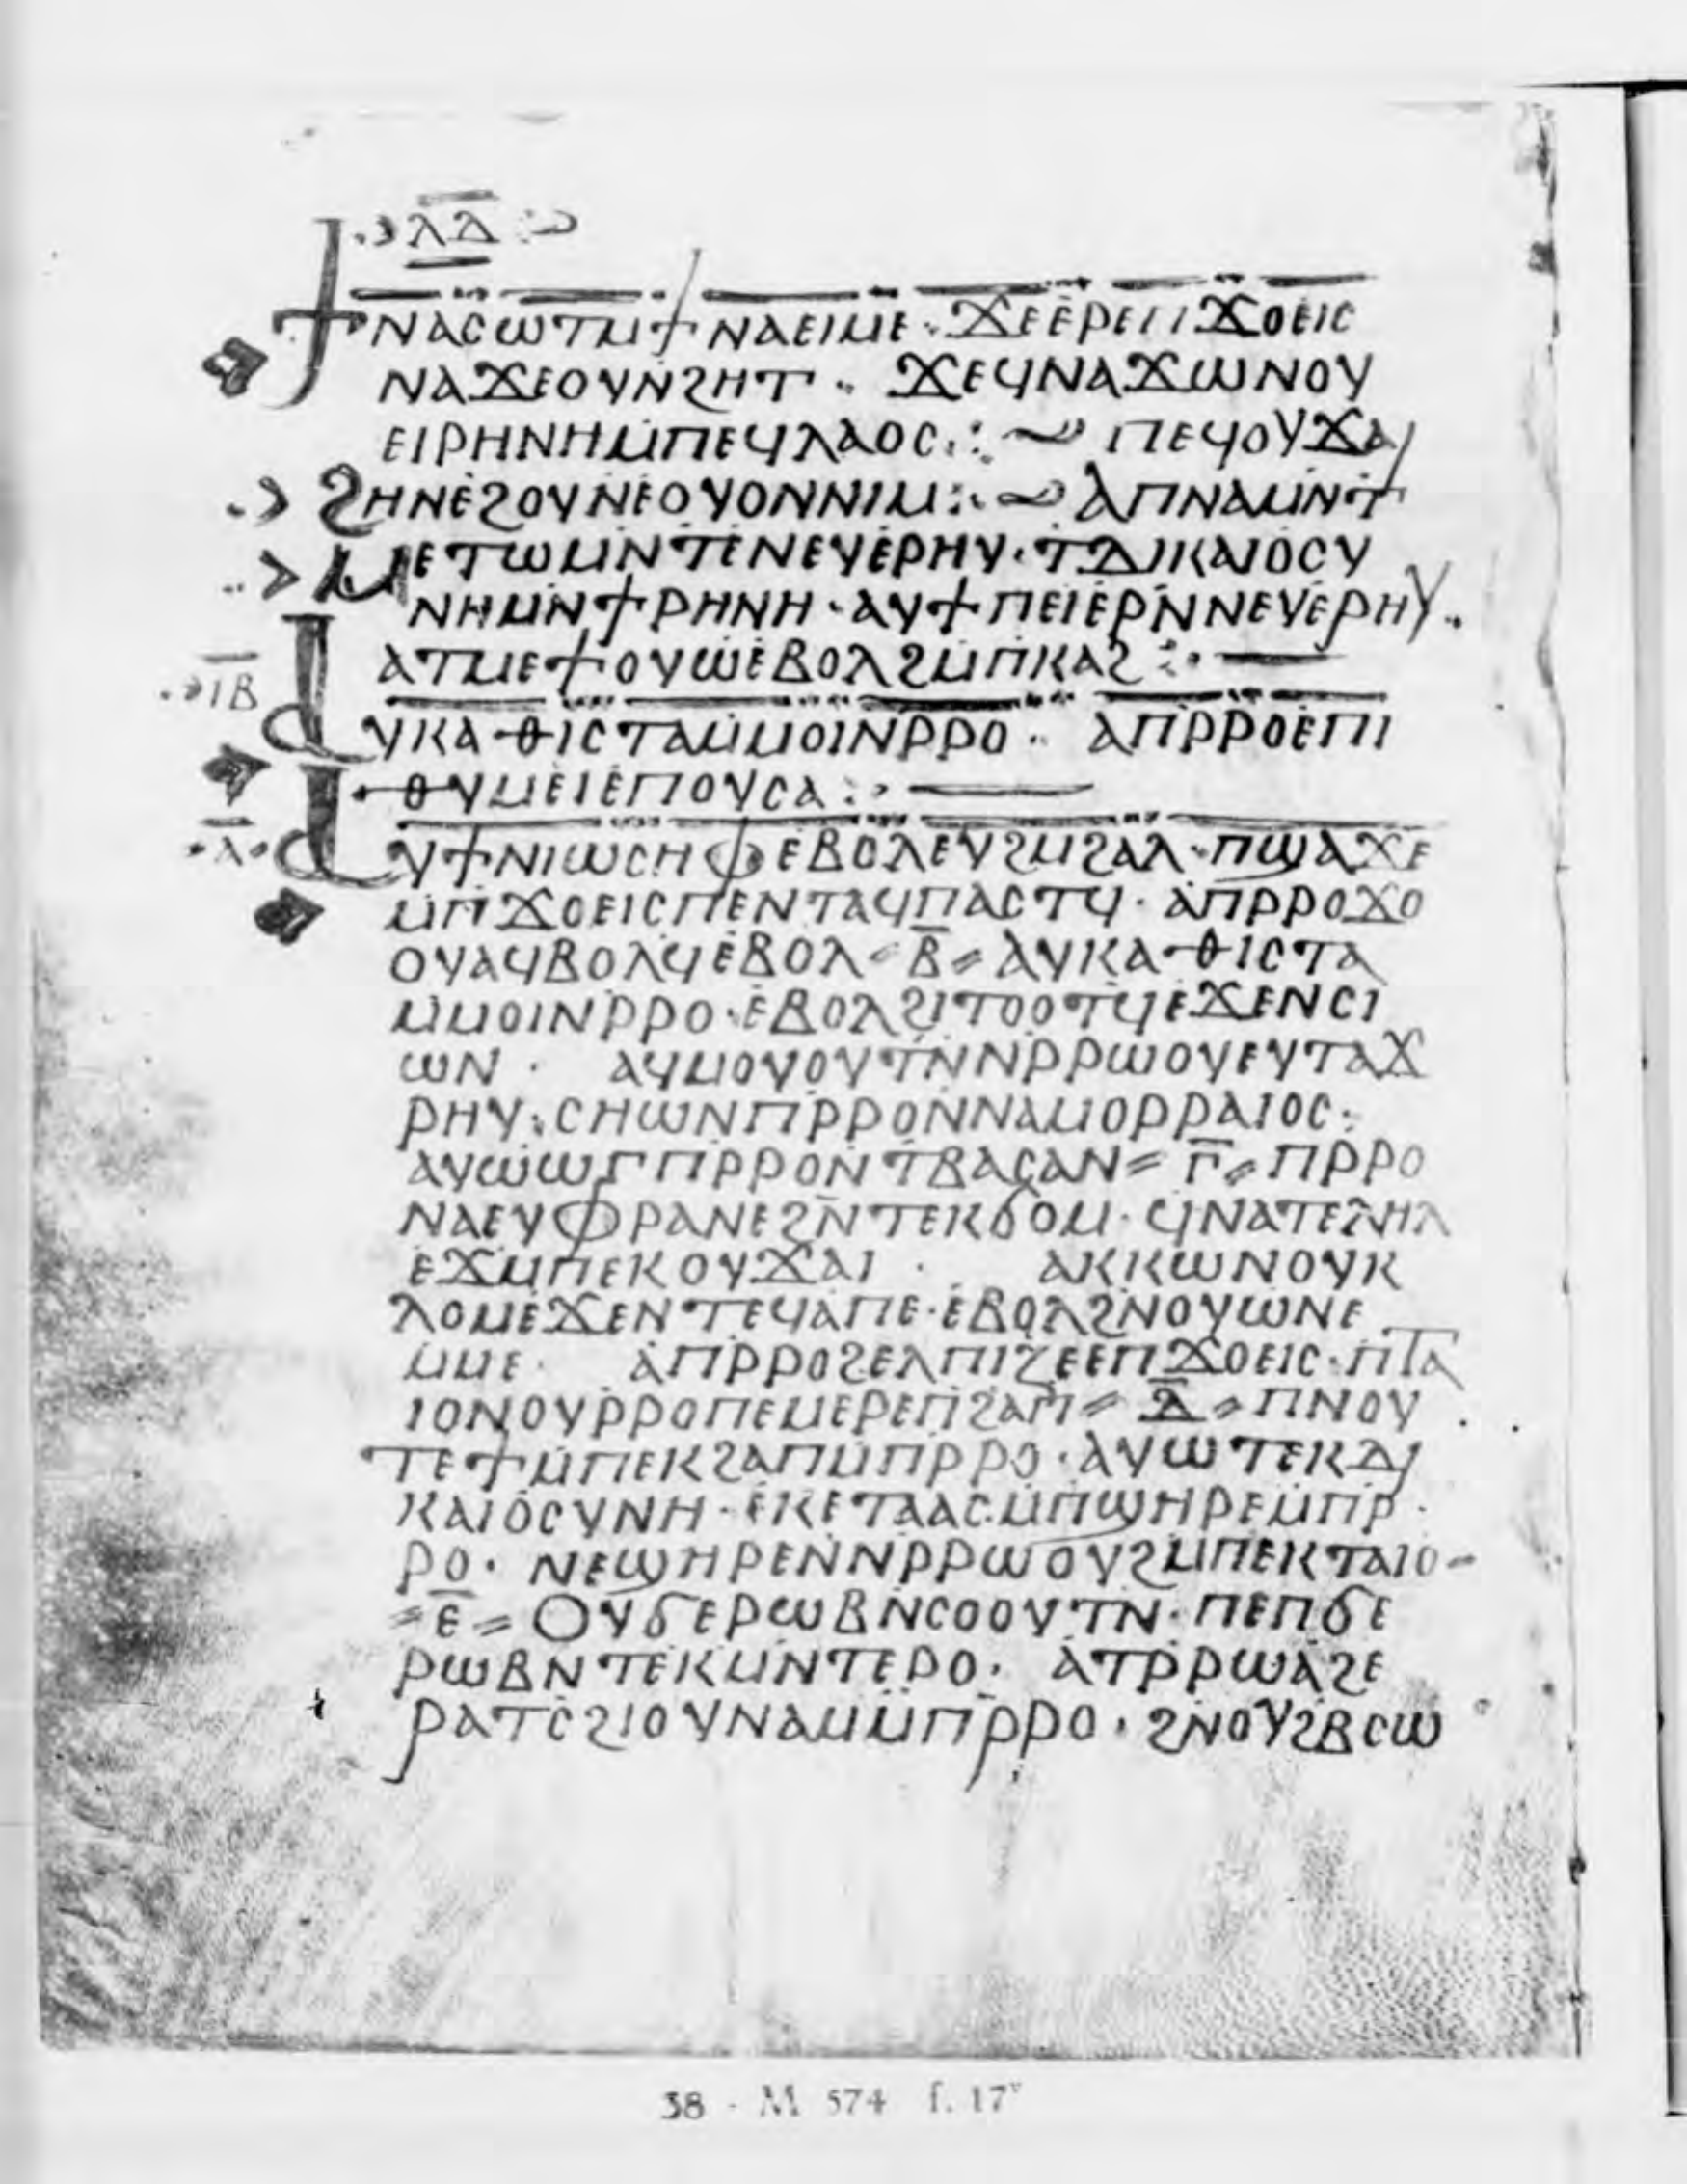 ⲗⲇ
ϯⲛⲁⲥⲱⲧⲙϯⲛⲁⲉⲓⲙⲉ · ϫⲉⲉⲣⲉⲡϫⲟⲉⲓⲥ
ⲛⲁϫⲉⲟⲩⲛϩⲏⲧ · ϫⲉϥⲛⲁϫⲱⲛⲟⲩ
ⲉⲓⲣⲏⲛⲏⲙⲡⲉϥⲗⲁⲟⲥ ⲡⲉϥⲟⲩϫⲁⲓ
ϩⲏⲛⲉϩⲟⲩⲛⲉⲟⲩⲟⲛⲛⲓⲙ ⲁⲡⲛⲁⲙⲛⲧ
ⲙⲉⲧⲱⲙⲛⲧⲉⲛⲉⲩⲉⲣⲏⲩ · ⲧⲇⲓⲕⲁⲓⲟⲥⲩ
ⲛⲏⲙⲛϯⲣⲏⲛⲏ · ⲁⲩϯⲡⲉⲓⲉⲣⲛⲛⲉⲩⲉⲣⲏⲩ ·
ⲁⲧⲙⲉϯⲟⲩⲱⲉⲃⲟⲗϩⲙⲡⲕⲁϩ
ⲓⲃ
ⲁⲩⲕⲁⲑⲓⲥⲧⲁⲙⲙⲟⲓⲛⲣⲣⲟ · ⲁⲡⲣⲣⲟⲉⲡⲓ
ⲑⲩⲙⲉⲓⲉⲡⲟⲩⲥⲁ
ⲗ
ⲁⲩϯⲛⲓⲱⲥⲏⲫⲉⲃⲟⲗⲉⲩϩⲙϩⲁⲗ · ⲡϣⲁϫⲉ
ⲙⲡϫⲟⲉⲓⲥⲡⲉⲛⲧⲁϥⲡⲁⲥⲧϥ · ⲁⲡⲣⲣⲟϫⲟ
ⲟⲩⲁϥⲃⲟⲗϥⲉⲃⲟⲗ = ⲃ̅ = ⲁⲩⲕⲁⲑⲓⲥⲧⲁ
ⲙⲙⲟⲓⲛⲣⲣⲟ · ⲉⲃⲟⲗϩⲓⲧⲟⲟⲧϥⲉϫⲉⲛⲥⲓ
ⲱⲛ · ⲁϥⲙⲟⲩⲟⲩⲧⲛⲛⲣⲣⲱⲟⲩⲉⲩⲧⲁϫ
ⲣⲏⲩ : ⲥⲏⲱⲛⲡⲣⲣⲟⲛⲛⲁⲙⲟⲣⲣⲁⲓⲟⲥ :
ⲁⲩⲱⲱⲅⲡⲣⲣⲟⲛⲧⲃⲁⲥⲁⲛ = ⲅ̅ = ⲡⲣⲣⲟ
ⲛⲁⲉⲩⲫⲣⲁⲛⲉϩⲛⲧⲉⲕϭⲟⲙ · ϥⲛⲁⲧⲉⲗⲏⲗ
ⲉϫⲙⲡⲉⲕⲟⲩϫⲁⲓ · ⲁⲕⲕⲱⲛⲟⲩⲕ
ⲗⲟⲙⲉϫⲉⲛⲧⲉϥⲁⲡⲉ · ⲉⲃⲟⲗϩⲛⲟⲩⲱⲛⲉ
ⲙⲙⲉ · ⲁⲡⲣⲣⲟϩⲉⲗⲡⲓⲍⲉⲉⲡϫⲟⲉⲓⲥ · ⲡⲧⲁ
ⲓⲟⲛⲟⲩⲣⲣⲟⲡⲉⲙⲉⲣⲉⲡϩⲁⲡ = ⲇ̅ = ⲡⲛⲟⲩ
ⲧⲉϯⲙⲡⲉⲕϩⲁⲡⲙⲡⲣⲣⲟ · ⲁⲩⲱⲧⲉⲕⲇⲓ
ⲕⲁⲓⲟⲥⲩⲛⲏ · ⲉⲕⲉⲧⲁⲁⲥⲙⲡϣⲏⲣⲉⲙⲡⲣ
ⲣⲟ · ⲛⲉϣⲏⲣⲉⲛⲛⲣⲣⲱⲟⲩϩⲙⲡⲉⲕⲧⲁⲓⲟ
= ⲉ̅ = ⲟⲩϭⲉⲣⲱⲃⲛⲥⲟⲟⲩⲧⲛ · ⲡⲉⲡϭⲉ
ⲣⲱⲃⲛⲧⲉⲕⲙⲛⲧⲉⲣⲟ · ⲁⲧⲣⲣⲱⲁϩⲉ
ⲣⲁⲧⲥϩⲓⲟⲩⲛⲁⲙⲙⲡⲣⲣⲟ · ϩⲛⲟⲩϩⲃⲥⲱ
38 - M 574 f. 17ᵛ